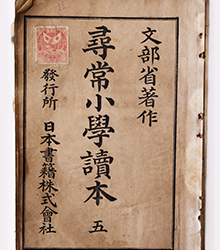 文部省著作
尋常小學讀本 五
發行所 日本書籍株式會社